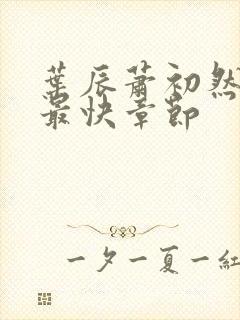 葉辰蕭初然
最快章節
一夕一夏一紅